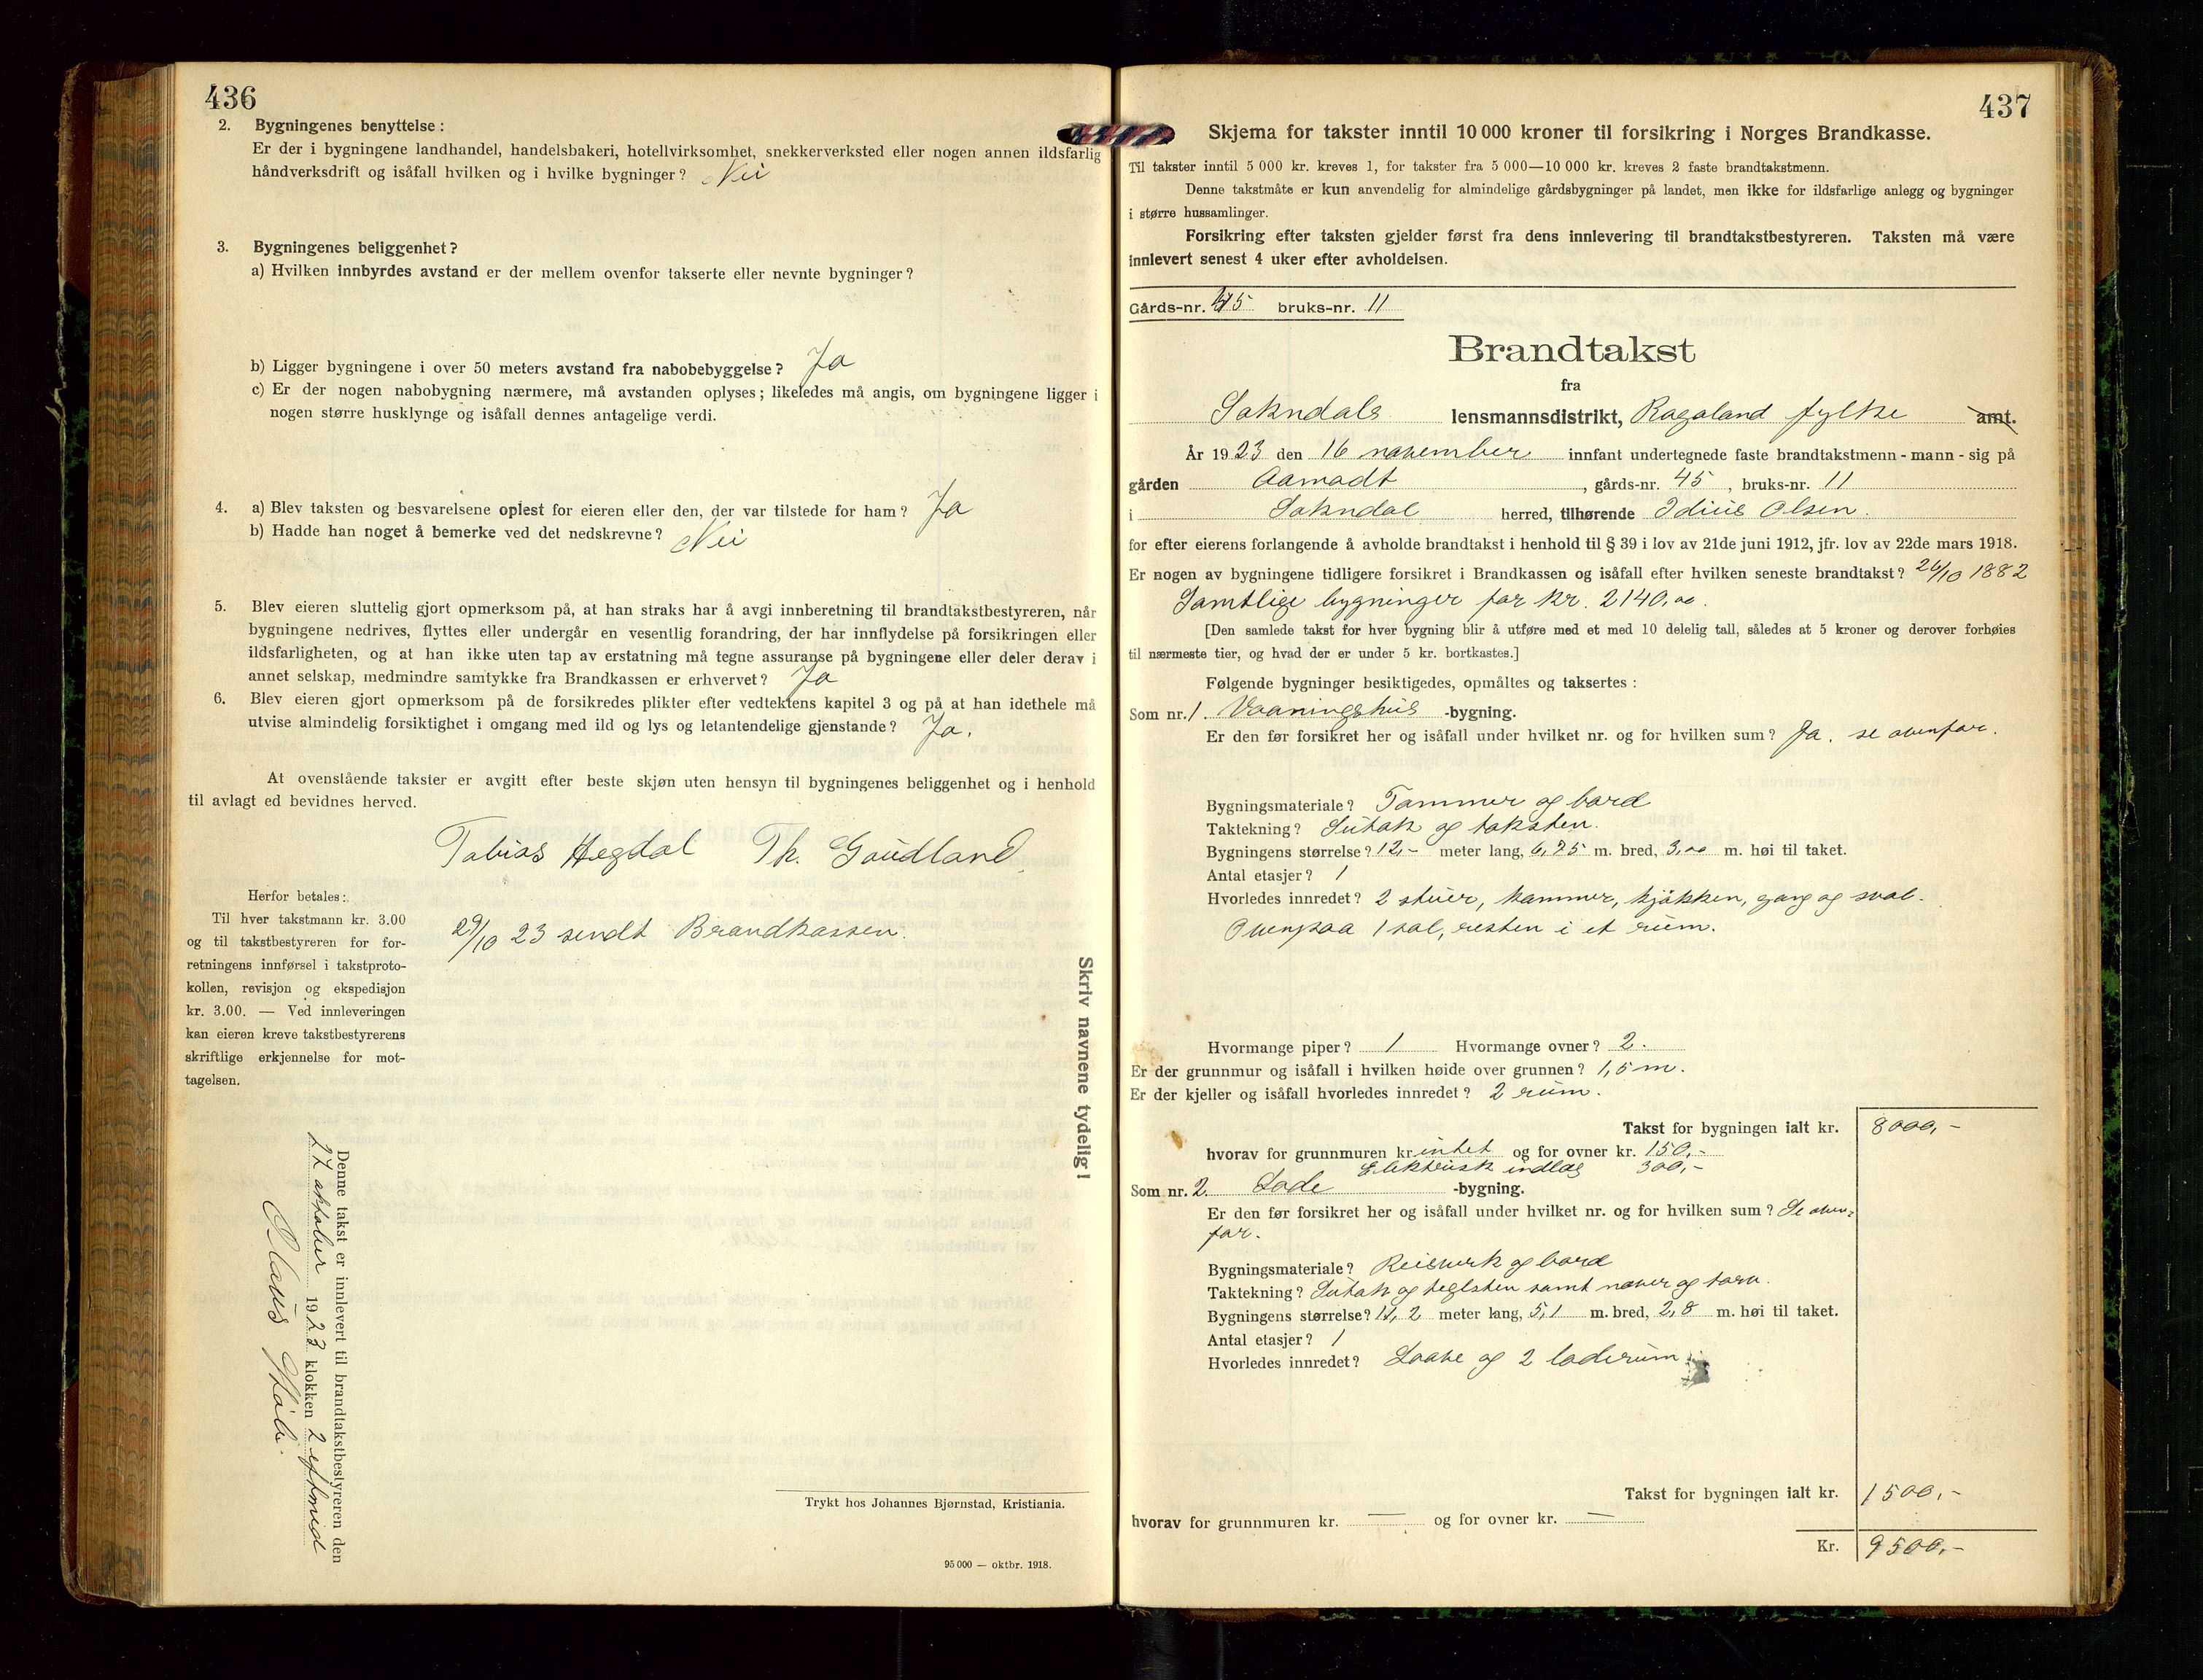 436
2. Bygningenes benyttelse:
Er der i bygningene landhandel, handelsbakeri, hotellvirksomhet, snekkerverksted eller nogen annen ildsfarlig
håndverksdrift og isåfall hvilken og i hvilke bygninger? Nei
3. Bygningenes beliggenhet?
a) Hvilken innbyrdes avstand er der mellem ovenfor takserte eller nevnte bygninger?
b) Ligger bygningene i over 50 meters avstand fra nabobebyggelse? Ja
c) Er der nogen nabobygning nærmere, må avstanden oplyses; likeledes må angis, om bygningene ligger i
nogen større husklynge og isåfall dennes antagelige verdi.
4. a) Blev taksten og besvarelsene oplest for eieren eller den, der var tilstede for ham? Ja
b) Hadde han noget å bemerke ved det nedskrevne? Nei
5. Blev eieren sluttelig gjort opmerksom på, at han straks har å avgi innberetning til brandtakstbestyreren, når
bygningene nedrives, flyttes eller undergår en vesentlig forandring, der har innflydelse på forsikringen eller
ildsfarligheten, og at han ikke uten tap av erstatning må tegne assuranse på bygningene eller deler derav i
annet selskap, medmindre samtykke fra Brandkassen er erhvervet? Ja
6. Blev eieren gjort opmerksom på de forsikredes plikter efter vedtektens kapitel 3 og på at han idethele må
utvise almindelig forsiktighet i omgang med ild og lys og letantendelige gjenstande? Ja.
At ovenstående takster er avgitt efter beste skjøn uten hensyn til bygningenes beliggenhet og i henhold
til avlagt ed bevidnes herved.
Tobias Hegdal Th. Goudland
Herfor betales:
Til hver takstmann kr. 3.00
og til takstbestyreren for for-
retningens innførsel i takstproto-
kollen, revisjon og ekspedisjon
kr. 3.00. — Ved innleveringen
kan eieren kreve takstbestyrerens
skriftlige erkjennelse for mot-
tagelsen.
29/10 23 sendt Brandkassen.
Skriv navnene tydelig!
Denne takst er innlevert til brandtakstbestyreren den
27 oktober 1923 klokken 2 eftmid
Trykt hos Johannes Bjørnstad, Kristiania.
95 000 — oktbr. 1918.
437
Skjema for takster inntil 10 000 kroner til forsikring i Norges Brandkasse.
Til takster inntil 5 000 kr. kreves 1, for takster fra 5 000—10 000 kr. kreves 2 faste brandtakstmenn.
Denne takstmåte er kun anvendelig for almindelige gårdsbygninger på landet, men ikke for ildsfarlige anlegg og bygninger
i større hussamlinger.
Forsikring efter taksten gjelder først fra dens innlevering til brandtakstbestyreren. Taksten må være
innlevert senest 4 uker efter avholdelsen.
Gårds-nr. 45 bruks-nr. 11
Brandtakst
fra
Sokndals lensmannsdistrikt, Rogaland fylke amt.
År 1923 den 16 november innfant undertegnede faste brandtakstmenn - mann - sig på
gården Aamodt, gårds-nr. 45, bruks-nr. 11
i Sokndal herred, tilhørende Idius Olsen.
for efter eierens forlangende å avholde brandtakst i henhold til § 39 i lov av 21de juni 1912, jfr. lov av 22de mars 1918.
Er nogen av bygningene tidligere forsikret i Brandkassen og isåfall efter hvilken seneste brandtakst? 26/10 1882
Samtlige bygninger for kr. 2140,00.
[Den samlede takst for hver bygning blir å utføre med et med 10 delelig tall, således at 5 kroner og derover forhøies
til nærmeste tier, og hvad der er under 5 kr. bortkastes.]
Følgende bygninger besiktigedes, opmåltes og taksertes:
Som nr. 1. Vaaningshus -bygning.
Er den før forsikret her og isåfall under hvilket nr. og for hvilken sum? Ja. se ovenfor.
Bygningsmateriale? Tømmer og bord
Taktekning? Sutak og taksten.
Bygningens størrelse? 12,- meter lang, 6,75 m. bred, 3,00 m. høi til taket.
Antal etasjer? 1
Hvorledes innredet? 2 stuer, kammer, kjøkken, gang og sval.
Ovenpaa 1 sal, resten i et rum.
Hvormange piper? 1 Hvormange ovner? 2.
Er der grunnmur og isåfall i hvilken høide over grunnen? 1,5 m.
Er der kjeller og isåfall hvorledes innredet? 2 rum.
Takst for bygningen ialt kr. 8000,-
hvorav for grunnmuren kr. intet og for ovner kr. 150,-
Elektrisk indlæg 300,-
Som nr. 2. Lade -bygning.
Er den før forsikret her og isåfall under hvilket nr. og for hvilken sum? Se oven-
for.
Bygningsmateriale? Reisverk og bord
Taktekning? Sutak og teglsten samt næver og torv.
Bygningens størrelse? 11,2 meter lang, 5,1 m. bred, 2,8 m. høi til taket.
Antal etasjer? 1
Hvorledes innredet? Laave og 2 laderum
Takst for bygningen ialt kr. 1500,-
hvorav for grunnmuren kr. — og for ovner kr. —
Kr. 9500,-